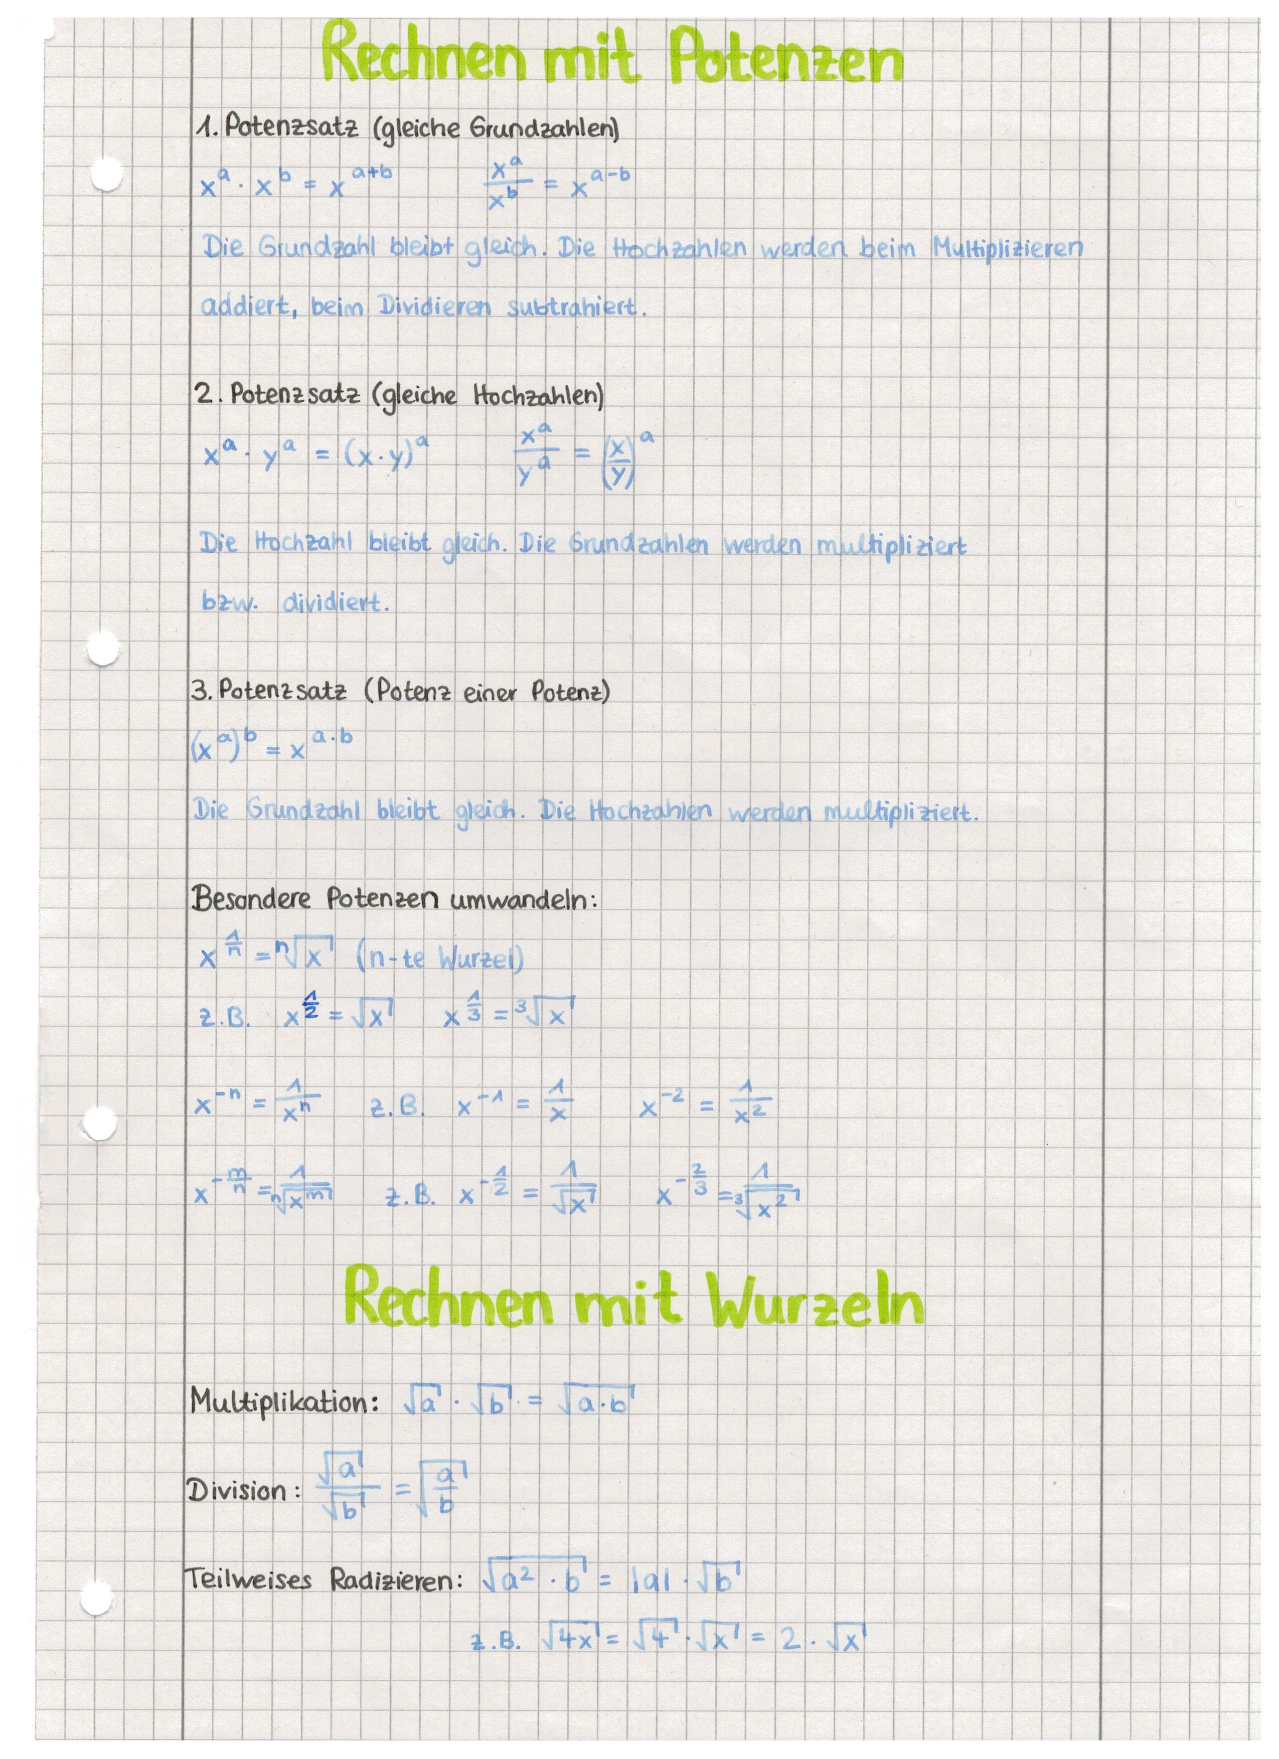 Rechnen mit Potenzen
1. Potenzsatz (gleiche Grundzahlen)
x^a · x^b = x^(a+b)    x^a/x^b = x^(a-b)
Die Grundzahl bleibt gleich. Die Hochzahlen werden beim Multiplizieren
addiert, beim Dividieren subtrahiert.
2. Potenzsatz (gleiche Hochzahlen)
x^a · y^a = (x·y)^a    x^a/y^a = (x/y)^a
Die Hochzahl bleibt gleich. Die Grundzahlen werden multipliziert
bzw. dividiert.
3. Potenzsatz (Potenz einer Potenz)
(x^a)^b = x^(a·b)
Die Grundzahl bleibt gleich. Die Hochzahlen werden multipliziert.
Besondere Potenzen umwandeln:
x^(1/n) = ⁿ√x (n-te Wurzel)
z.B. x^(1/2) = √x    x^(1/3) = ³√x
x^(-n) = 1/x^n    z.B. x^(-1) = 1/x    x^(-2) = 1/x^2
x^(-m/n) = 1/ⁿ√(x^m)    z.B. x^(-1/2) = 1/√x    x^(-2/3) = 1/³√(x^2)
Rechnen mit Wurzeln
Multiplikation: √a · √b = √(a·b)
Division: √a/√b = √(a/b)
Teilweises Radizieren: √(a² · b) = |a| · √b
z.B. √(4x) = √4 · √x = 2 · √x